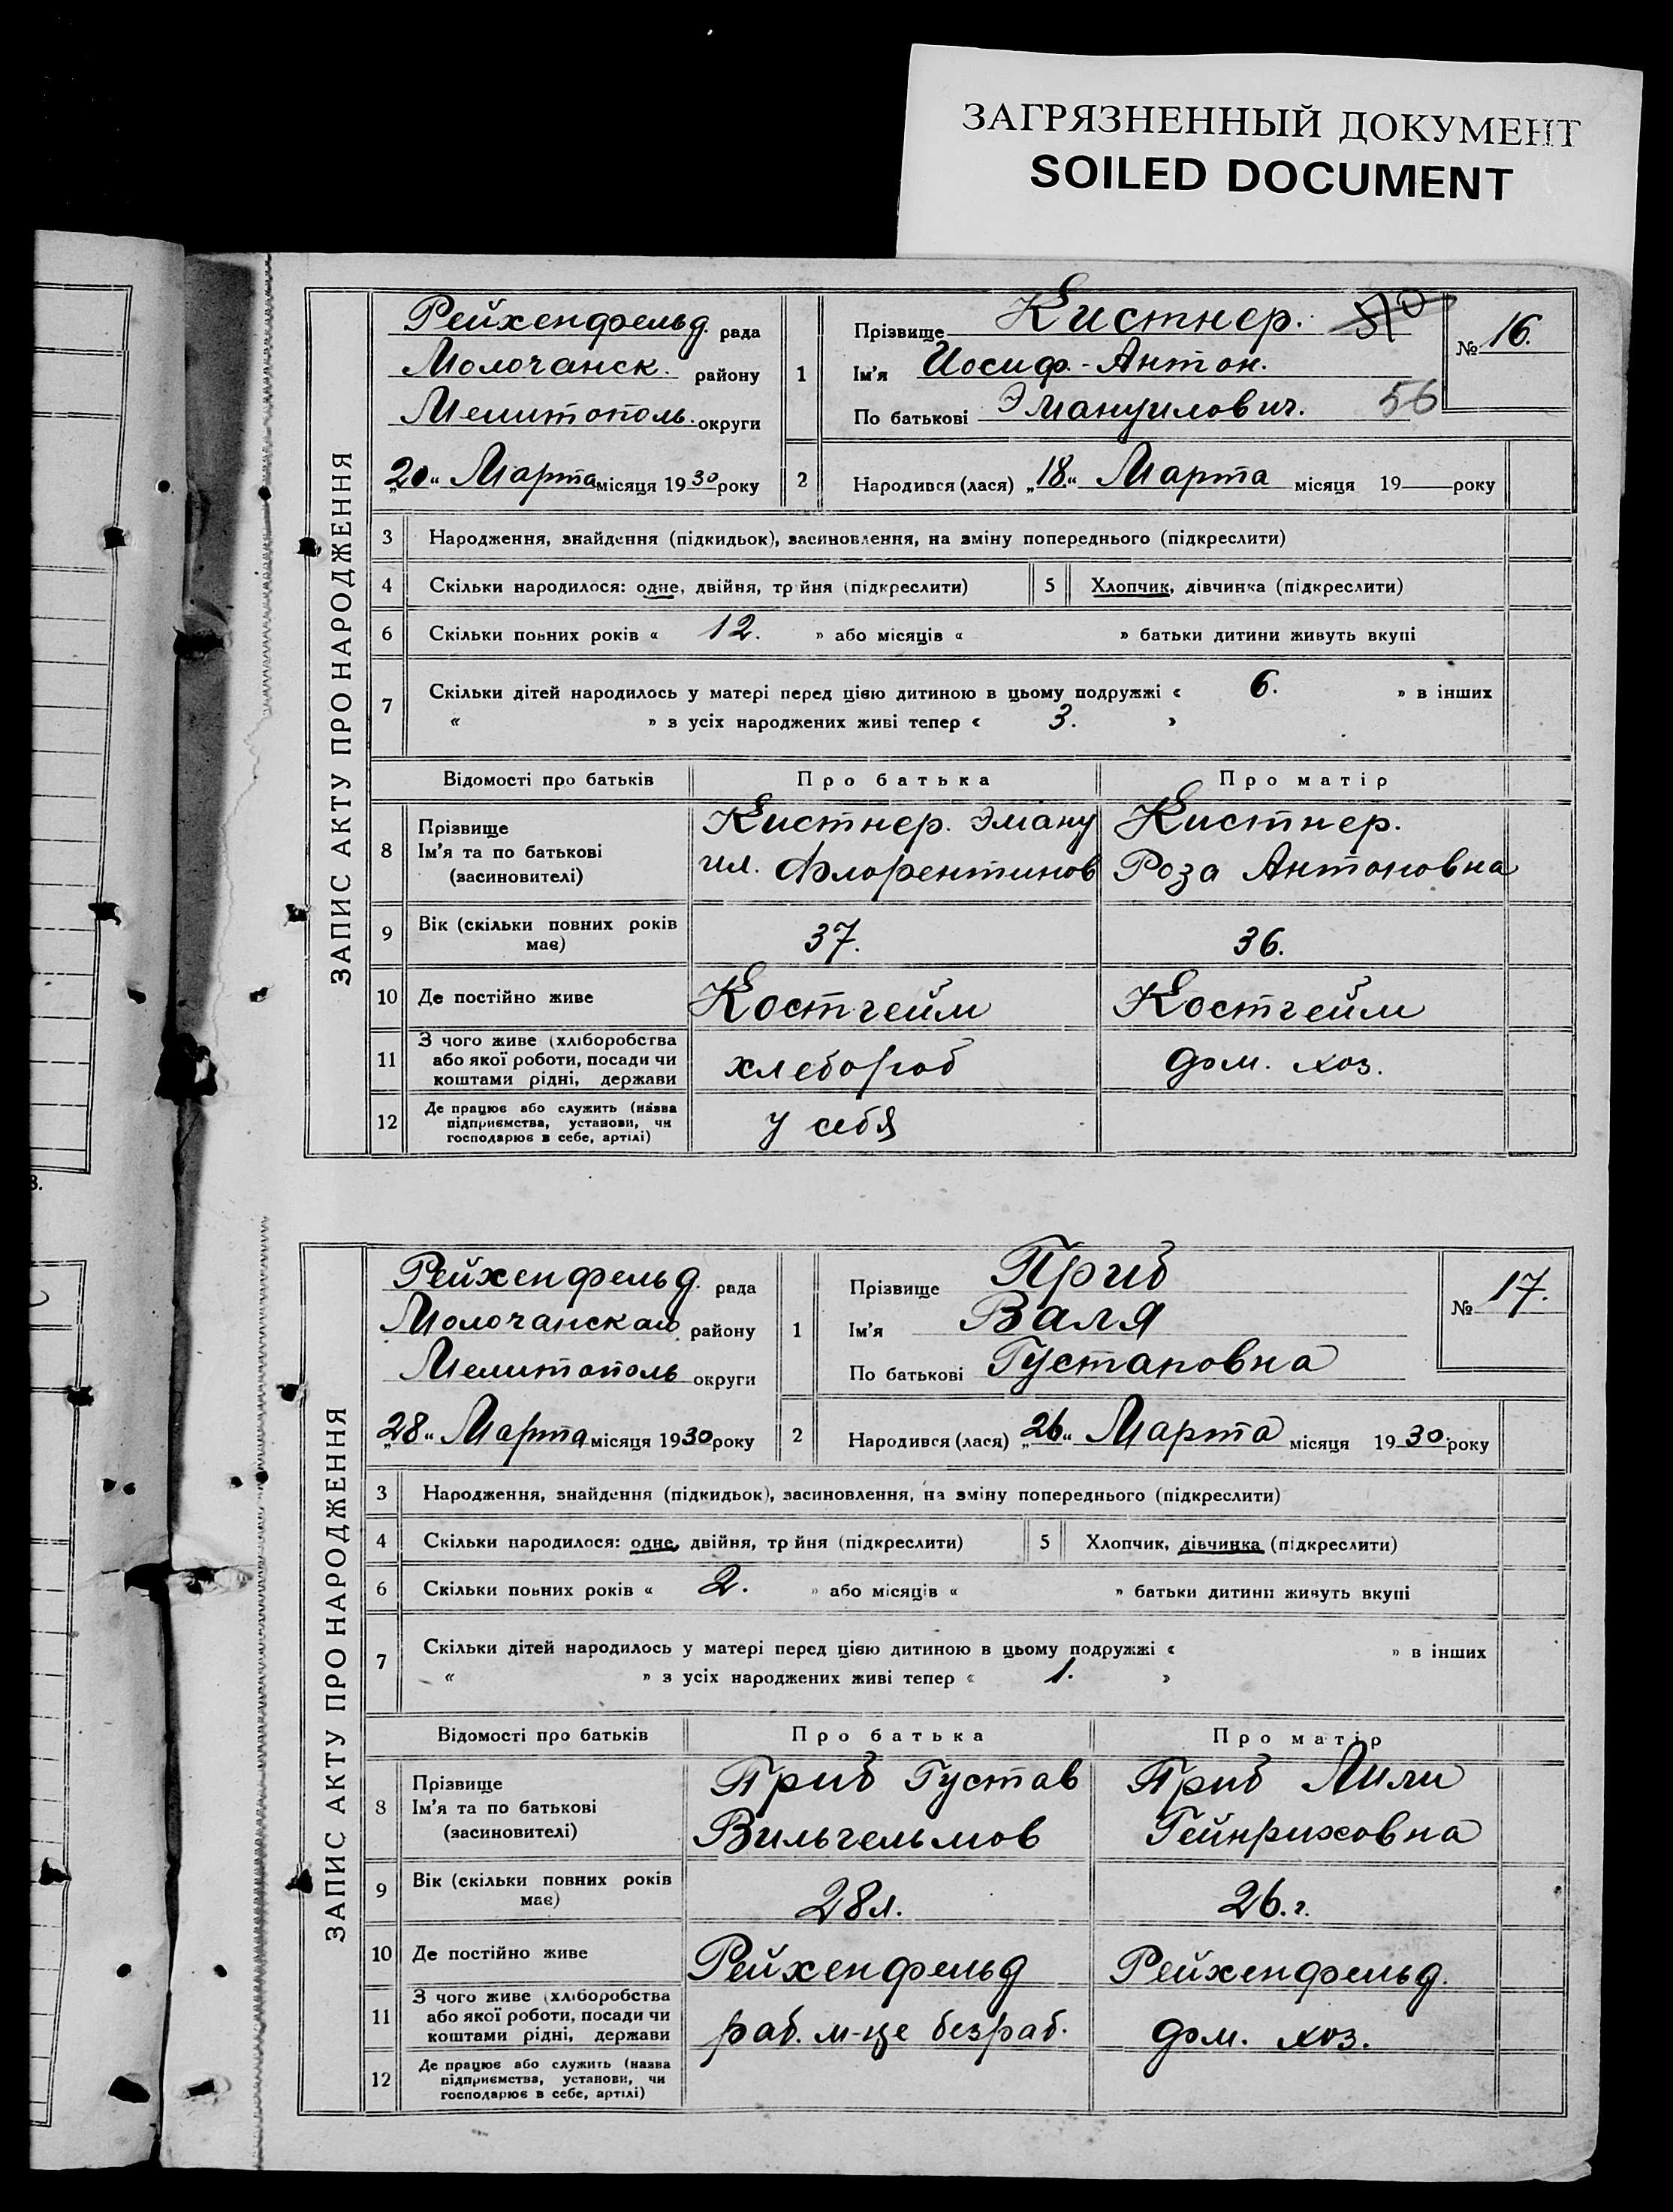 ЗАГРЯЗНЕННЫЙ ДОКУМЕНТ
SOILED DOCUMENT
ЗАПИС АКТУ ПРО НАРОДЖЕННЯ
Рейхенфельд. рада
Молочанск. району
Мелитополь. округи
„20“ Марта місяця 1930 року
1
Прізвище Кистнер. 510
Ім'я Иосиф.-Антон.
По батькові Эмануилович. 56
№ 16.
2 Народився (лася) „18“ Марта місяця 19 — року
3 Народження, знайдення (підкидьок), засиновлення, на зміну попереднього (підкреслити)
4 Скільки народилося: одне, двійня, тр йня (підкреслити) 5 Хлопчик, дівчинка (підкреслити)
6 Скільки повних років « 12. » або місяців « » батьки дитини живуть вкупі
7 Скільки дітей народилось у матері перед цією дитиною в цьому подружжі « 6. » в інших
« » з усіх народжених живі тепер « 3. »
Відомості про батьків Про батька Про матір
8 Прізвище
Ім'я та по батькові
(засиновителі)
Кистнер. Эману
ил. Флорентинов
Кистнер.
Роза Антоновна
9 Вік (скільки повних років
має)
37. 36.
10 Де постійно живе Костгейм Костгейм
11 З чого живе (хліборобства
або якої роботи, посади чи
коштами рідні, держави
хлебороб дом. хоз.
12 Де працює або служить (назва
підприємства, установи, чи
господарює в себе, артілі)
у себя
3.
ЗАПИС АКТУ ПРО НАРОДЖЕННЯ
Рейхенфельд. рада
Молочанскаго району
Мелитополь округи
„28“ Марта місяця 1930 року
1
Прізвище Приб
Ім'я Валя
По батькові Густаповна
№ 17.
2 Народився (лася) „26“ Марта місяця 1930. року
3 Народження, знайдення (підкидьок), засиновлення, на зміну попереднього (підкреслити)
4 Скільки народилося: одне, двійня, тр йня (підкреслити) 5 Хлопчик, дівчинка (підкреслити)
6 Скільки повних років « 2. » або місяців « » батьки дитини живуть вкупі
7 Скільки дітей народилось у матері перед цією дитиною в цьому подружжі « » в інших
« » з усіх народжених живі тепер « 1. »
Відомості про батьків Про батька Про матір
8 Прізвище
Ім'я та по батькові
(засиновителі)
Приб Густав
Вильгельмов
Приб Лили
Гейнриховна
9 Вік (скільки повних років
має)
28 л. 26. г.
10 Де постійно живе Рейхенфельд Рейхенфельд.
11 З чого живе (хліборобства
або якої роботи, посади чи
коштами рідні, держави
раб. м-це безраб. дом. хоз.
12 Де працює або служить (назва
підприємства, установи, чи
господарює в себе, артілі)